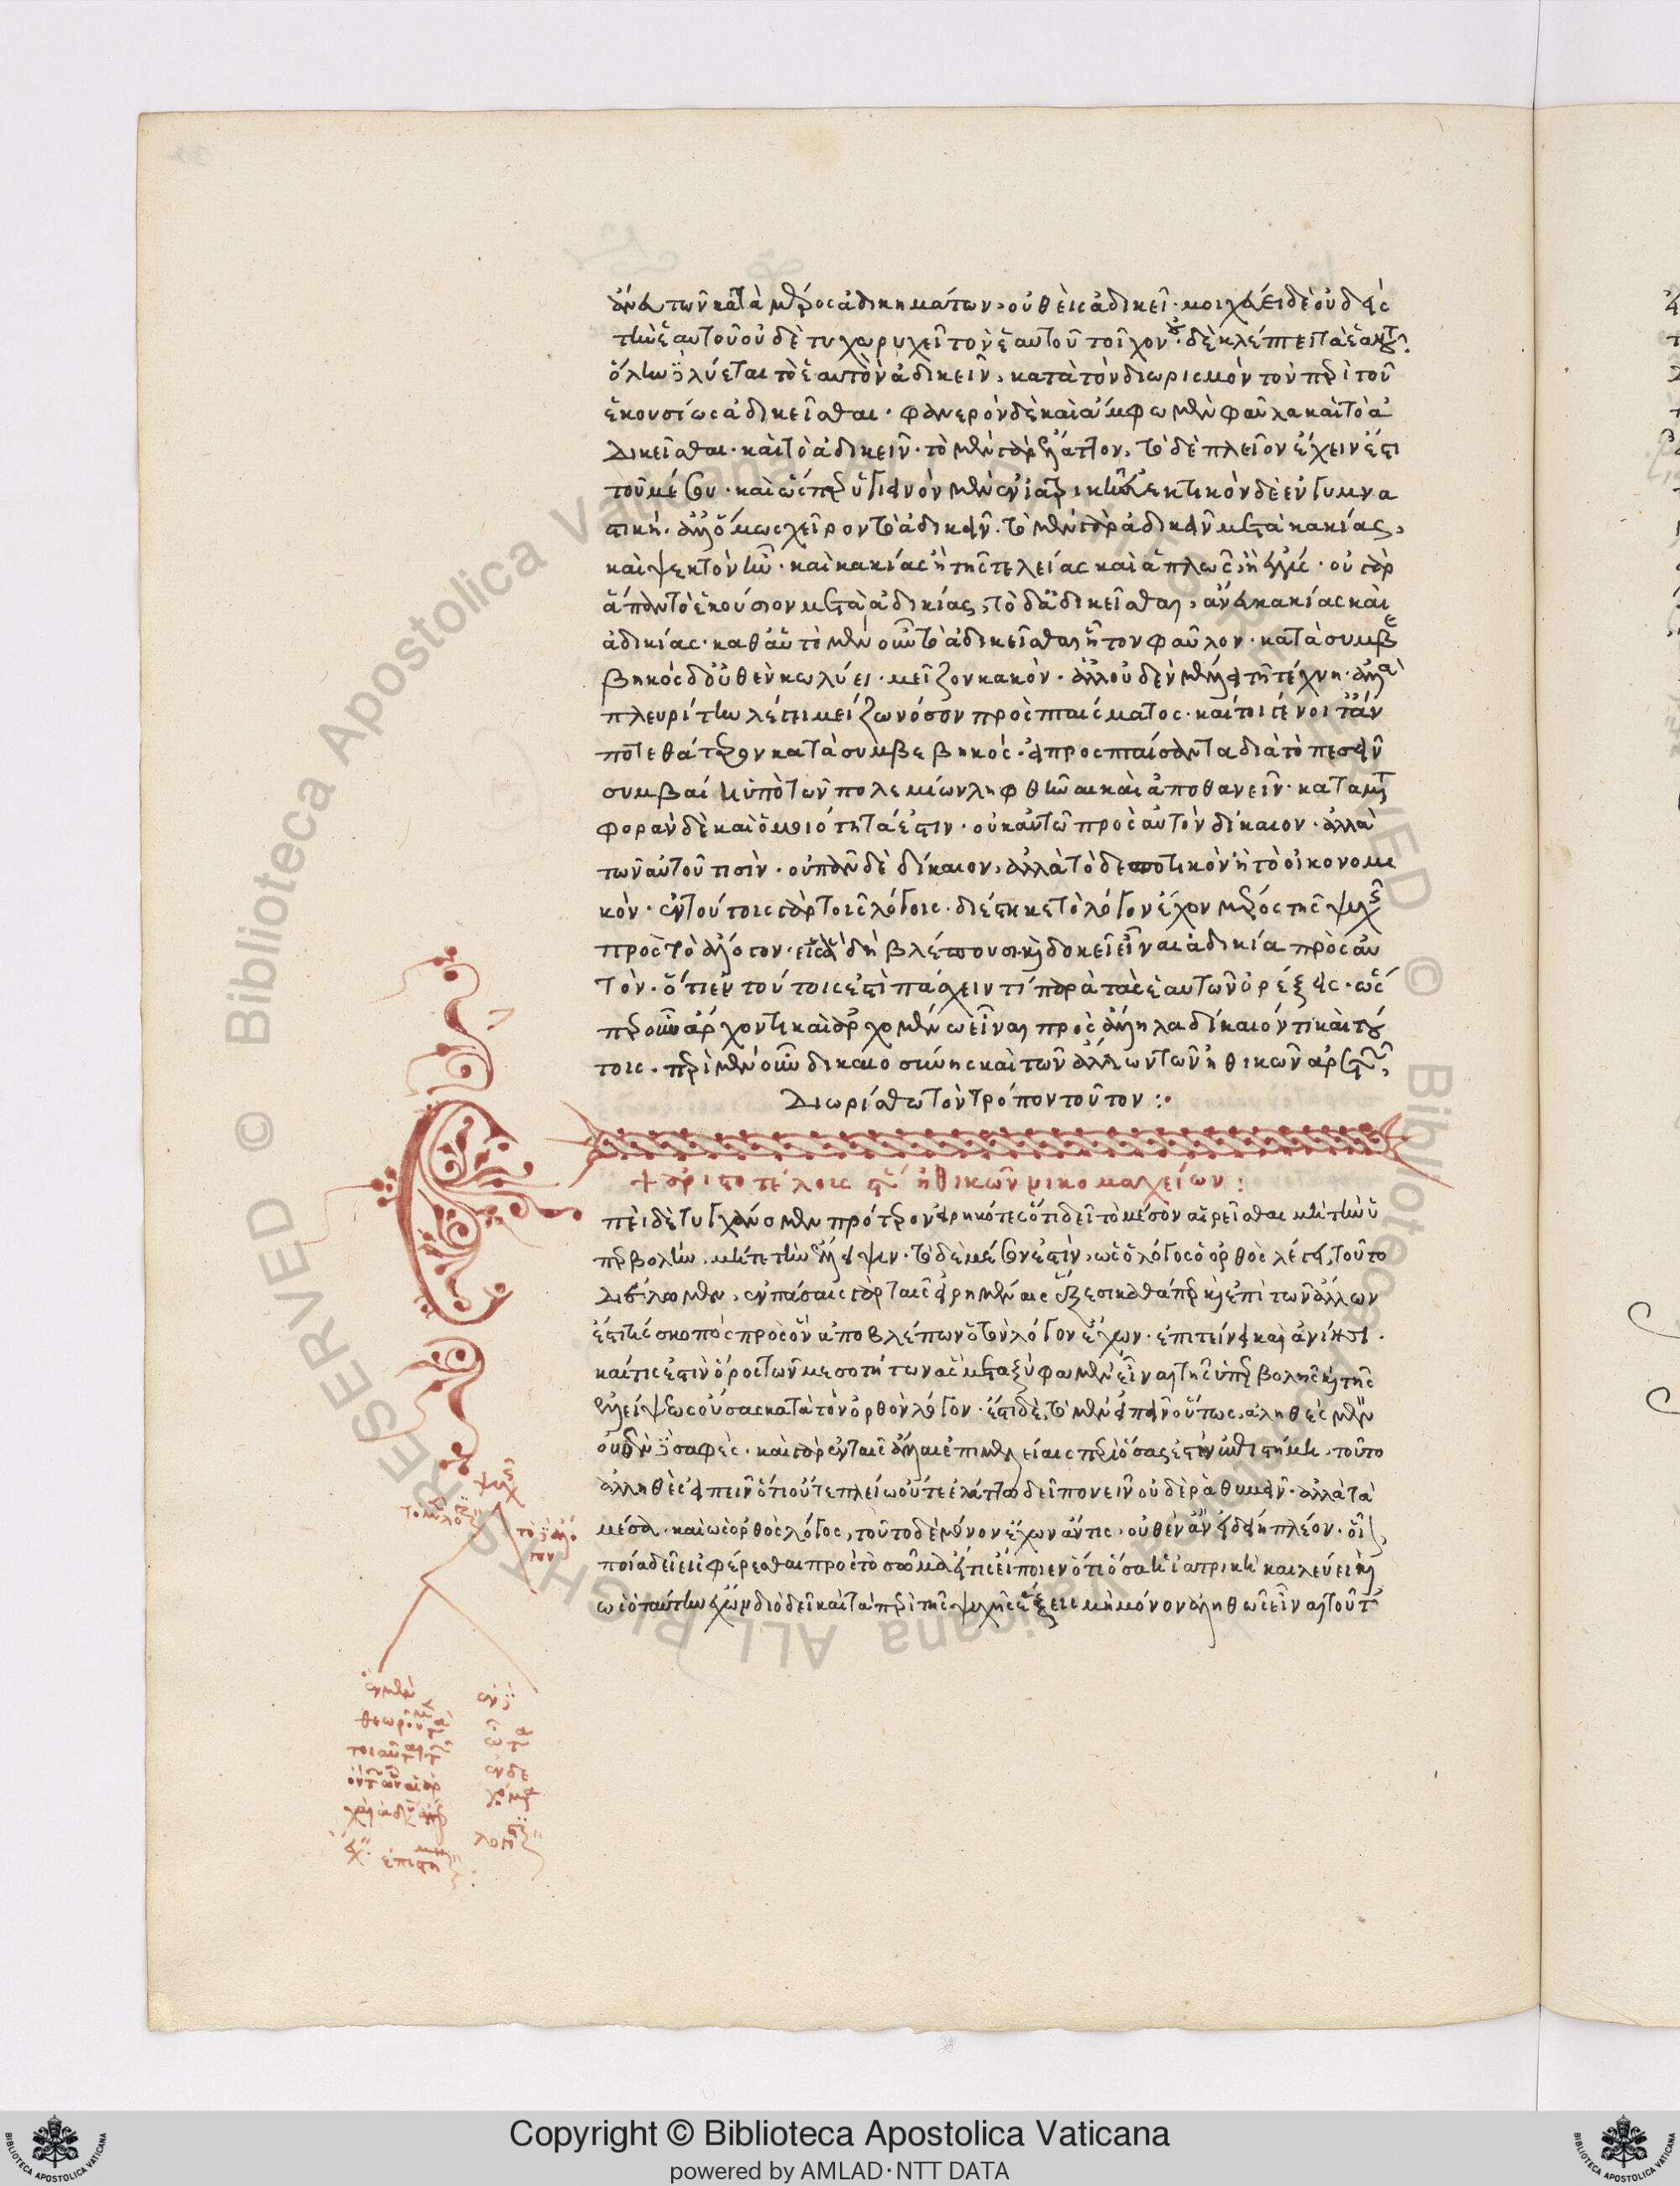 ἄνευ τῶν κατὰ μέρος ἀδικημάτων, οὐθεὶς ἀδικεῖ· μοιχεύει δὲ οὐδεὶς
τὴν ἑαυτοῦ οὐδὲ τυχωρυχεῖ τὸν ἑαυτοῦ τοῖχον· οὐδὲ κλέπτει τὰ ἑαυτοῦ·
ὅλως δὲ λύεται τὸ ἑαυτὸν ἀδικεῖν, κατὰ τὸν διωρισμὸν τὸν περὶ τοῦ
ἑκουσίως ἀδικεῖσθαι· φανερὸν δὲ καὶ ἄμφω μὲν φαῦλα καὶ τὸ ἀ
δικεῖσθαι· καὶ τὸ ἀδικεῖν· τὸ μὲν γὰρ ἔλαττον, τὸ δὲ πλεῖον ἔχειν ἐστὶ
τοῦ μέσου· καὶ ὥσπερ ὑγιεινὸν μὲν ἐν ἰατρικῇ εὐεκτικὸν δὲ ἐν γυμνα
στικῇ· ἀλλ' ὅμως χεῖρον τὸ ἀδικεῖν· τὸ μὲν γὰρ ἀδικεῖν μετὰ κακίας,
καὶ ψεκτόν· καὶ κακίας ἢ τῆς τελείας καὶ ἁπλῶς, ἢ ἐγγύς· οὐ γὰρ
ἅπαν τὸ ἑκούσιον μετὰ ἀδικίας, τὸ δ' ἀδικεῖσθαι, ἄνευ κακίας καὶ
ἀδικίας· καθ' αὑτὸ μὲν οὖν τὸ ἀδικεῖσθαι ἧττον φαῦλον· κατὰ συμβε
βηκὸς δ' οὐθὲν κωλύει· μεῖζον κακόν· ἀλλ' οὐδὲν μέλει τῇ τέχνῃ· ἀλλὰ
πλευρίτην λέγει μείζω νόσον προσπταίσματος· καίτοι γένοιτ' ἄν
ποτε θάτερον κατὰ συμβεβηκός· εἰ προσπταίσαντα διὰ τὸ πεσεῖν
συμβαίη ὑπὸ τῶν πολεμίων ληφθῆναι καὶ ἀποθανεῖν· κατὰ μετα
φορὰν δὲ καὶ ὁμοιότητά ἐστιν· οὐκ αὐτῷ πρὸς αὑτὸν δίκαιον· ἀλλὰ
τῶν αὐτοῦ τισίν· οὐ πᾶν δὲ δίκαιον, ἀλλὰ τὸ δεσποτικὸν ἢ τὸ οἰκονομι
κόν· ἐν τούτοις γὰρ τοῖς λόγοις· διέστηκε τὸ λόγον ἔχον μέρος τῆς ψυχῆς
πρὸς τὸ ἄλογον· εἰς ἃ δὴ βλέπουσι καὶ δοκεῖ εἶναι ἀδικία πρὸς αὑ
τόν· ὅτι ἐν τούτοις ἐστὶ πάσχειν τι παρὰ τὰς ἑαυτῶν ὀρέξεις· ὥσ
περ οὖν ἄρχοντι καὶ ἀρχομένῳ εἶναι πρὸς ἄλληλα δίκαιόν τι καὶ τού
τοις· περὶ μὲν οὖν δικαιοσύνης καὶ τῶν ἄλλων τῶν ἠθικῶν ἀρετῶν,
Διωρίσθω τὸν τρόπον τοῦτον :
+ ἀριστοτέλους ἠθικῶν νικομαχείων :
Ἐπεὶ δὲ τυγχάνομεν πρότερον εἰρηκότες ὅτι δεῖ τὸ μέσον αἱρεῖσθαι μὴ τὴν ὑ
περβολὴν, μήτε τὴν ἔλλειψιν· τὸ δὲ μέσον ἐστὶν, ὡς ὁ λόγος ὁ ὀρθὸς λέγει, τοῦτο
διέλωμεν, ἐν πάσαις γὰρ ταῖς εἰρημέναις ἕξεσι καθάπερ καὶ ἐπὶ τῶν ἄλλων
ἔστι τις σκοπὸς πρὸς ὃν ἀποβλέπων ὁ τὸν λόγον ἔχων· ἐπιτείνει καὶ ἀνίησι·
καί τις ἐστὶν ὅρος τῶν μεσοτήτων ἃς μεταξύ φαμεν εἶναι τῆς ὑπερβολῆς καὶ τῆς
ἐλλείψεως οὔσας κατὰ τὸν ὀρθὸν λόγον· ἔστι δὲ, τὸ μὲν εἰπεῖν οὕτως, ἀληθὲς μὲν
οὐδὲν δὲ σαφές· καὶ γὰρ ἐν ταῖς ἄλλαις ἐπιμελείαις περὶ ὅσας ἐστὶν ἐπιστήμη, τοῦτο
ἀληθὲς εἰπεῖν ὅτι οὔτε πλείω οὔτε ἐλάττω δεῖ πονεῖν οὐδὲ ῥαθυμεῖν· ἀλλὰ τὰ
μέσα· καὶ ὡς ὁ ὀρθὸς λόγος, τοῦτο δὲ μόνον ἔχων ἄν τις, οὐθὲν ἂν εἰδείη πλέον· οἷον
ποῖα δεῖ εἰσφέρεσθαι πρὸς τὸ σῶμα εἴ τις εἴποιεν ὅτι ὅσα ἡ ἰατρικὴ κελεύει καὶ
ὡς ὁ ταύτην ἔχων διὸ δεῖ καὶ τὰ περὶ τῆς ψυχῆς ἕξεις μὴ μόνον ἀληθῶς εἶναι τοῦτ
ψυχῆς
τὸ ἄλο
γον
ἓν μὲν